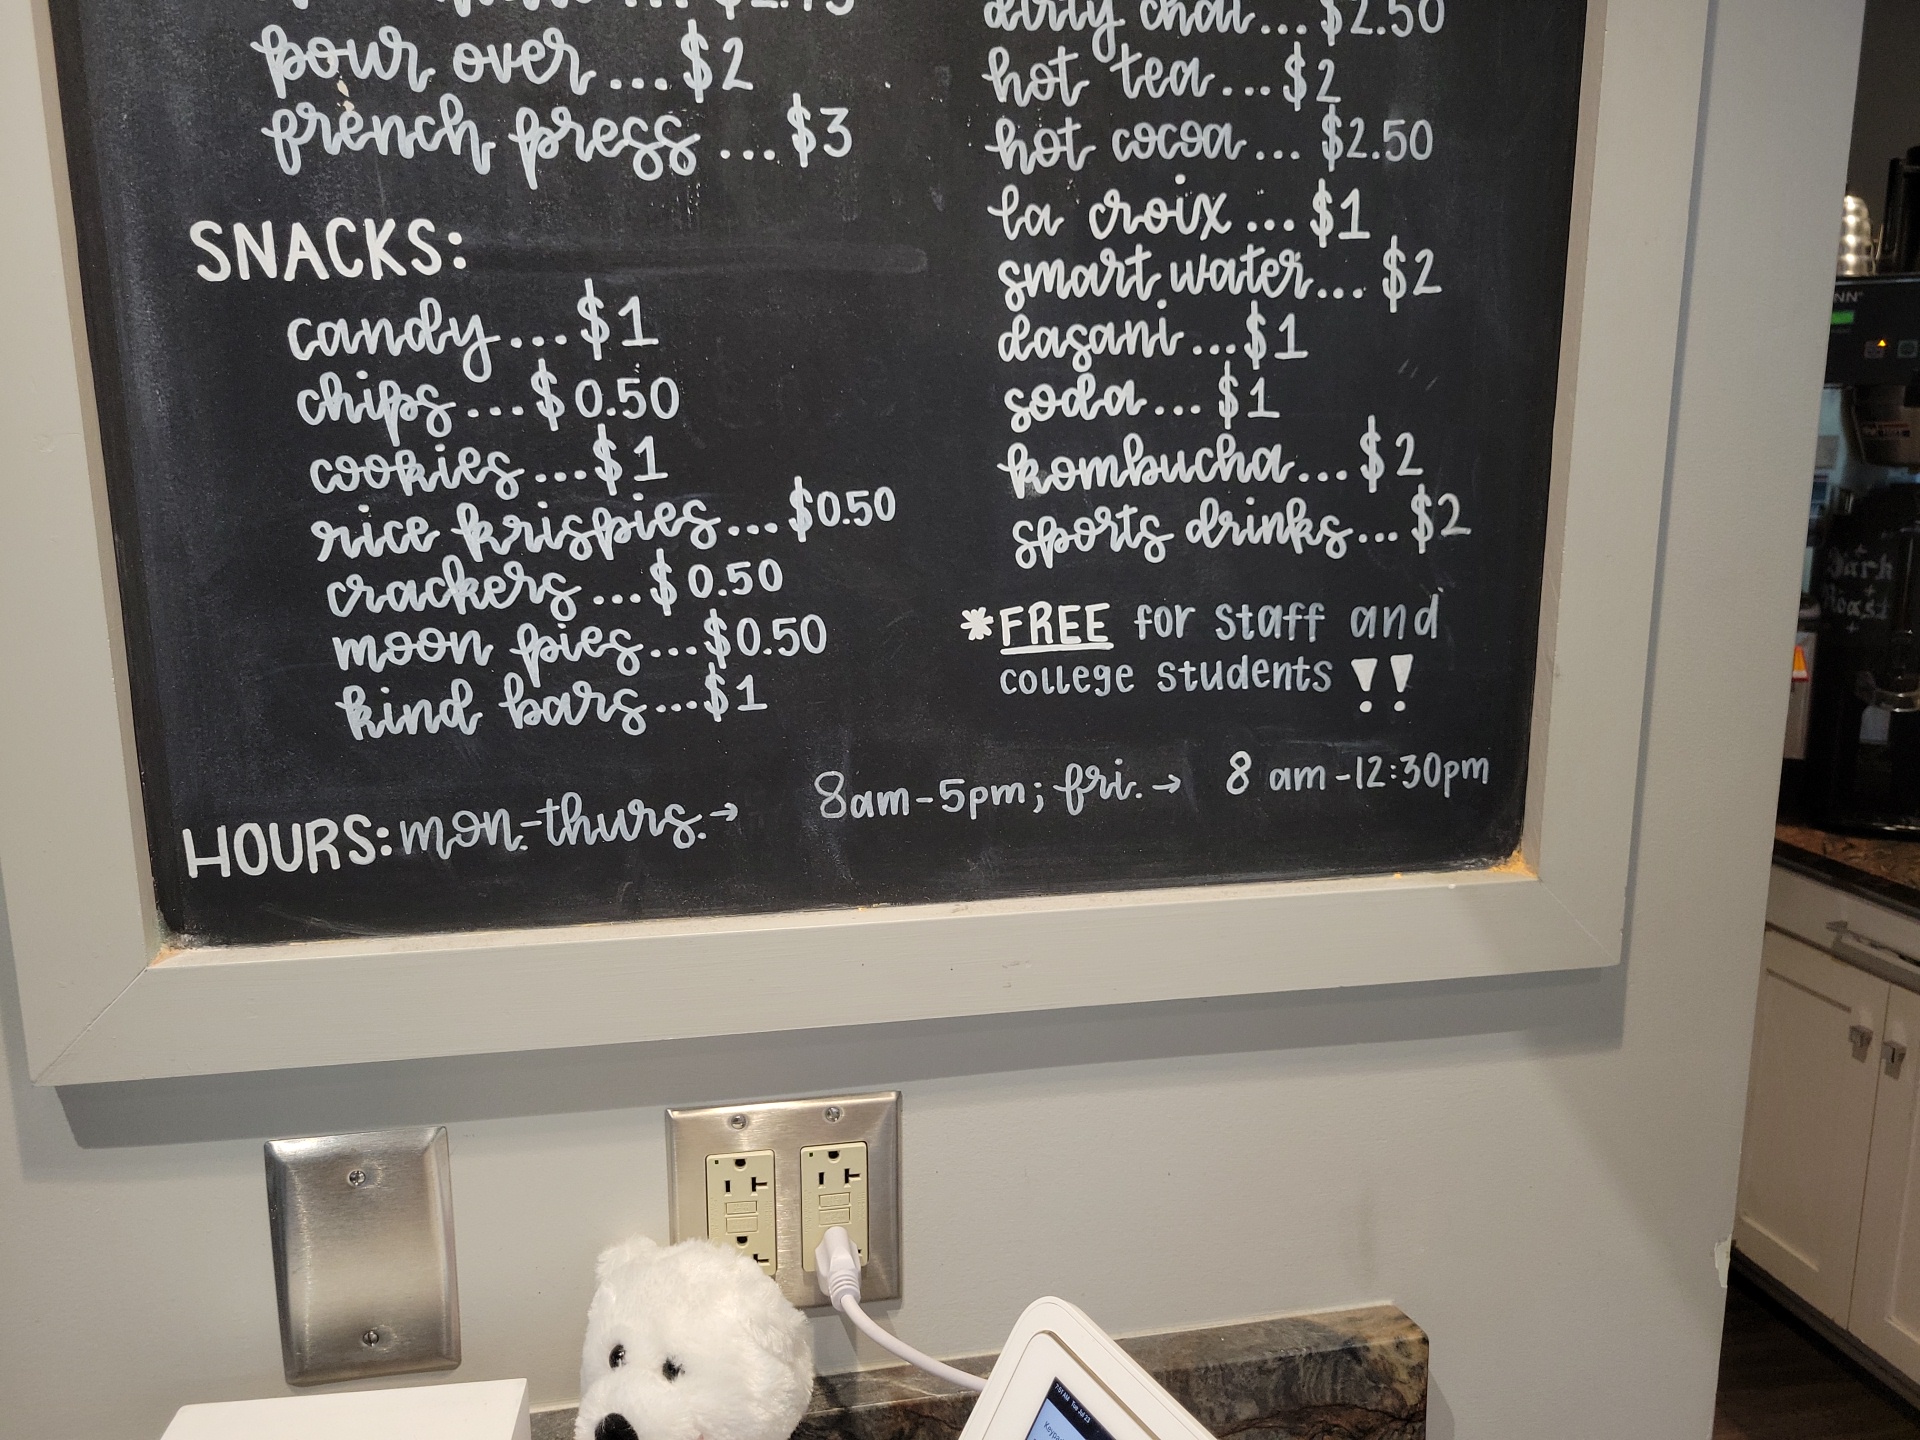 pour over...$2
french press...$3
SNACKS:
candy...$1
chips...$0.50
cookies...$1
rice krispies...$0.50
crackers...$0.50
moon pies...$0.50
kind bars...$1
dirty chai...$2.50
hot tea...$2
hot cocoa...$2.50
la croix...$1
smart water...$2
dasani...$1
soda...$1
kombucha...$2
sports drinks...$2
*FREE for staff and
college students !!
HOURS: mon.-thurs.→ 8am-5pm; fri.→ 8 am-12:30pm
Dark
Roast
7:51 AM Tue Jul 23